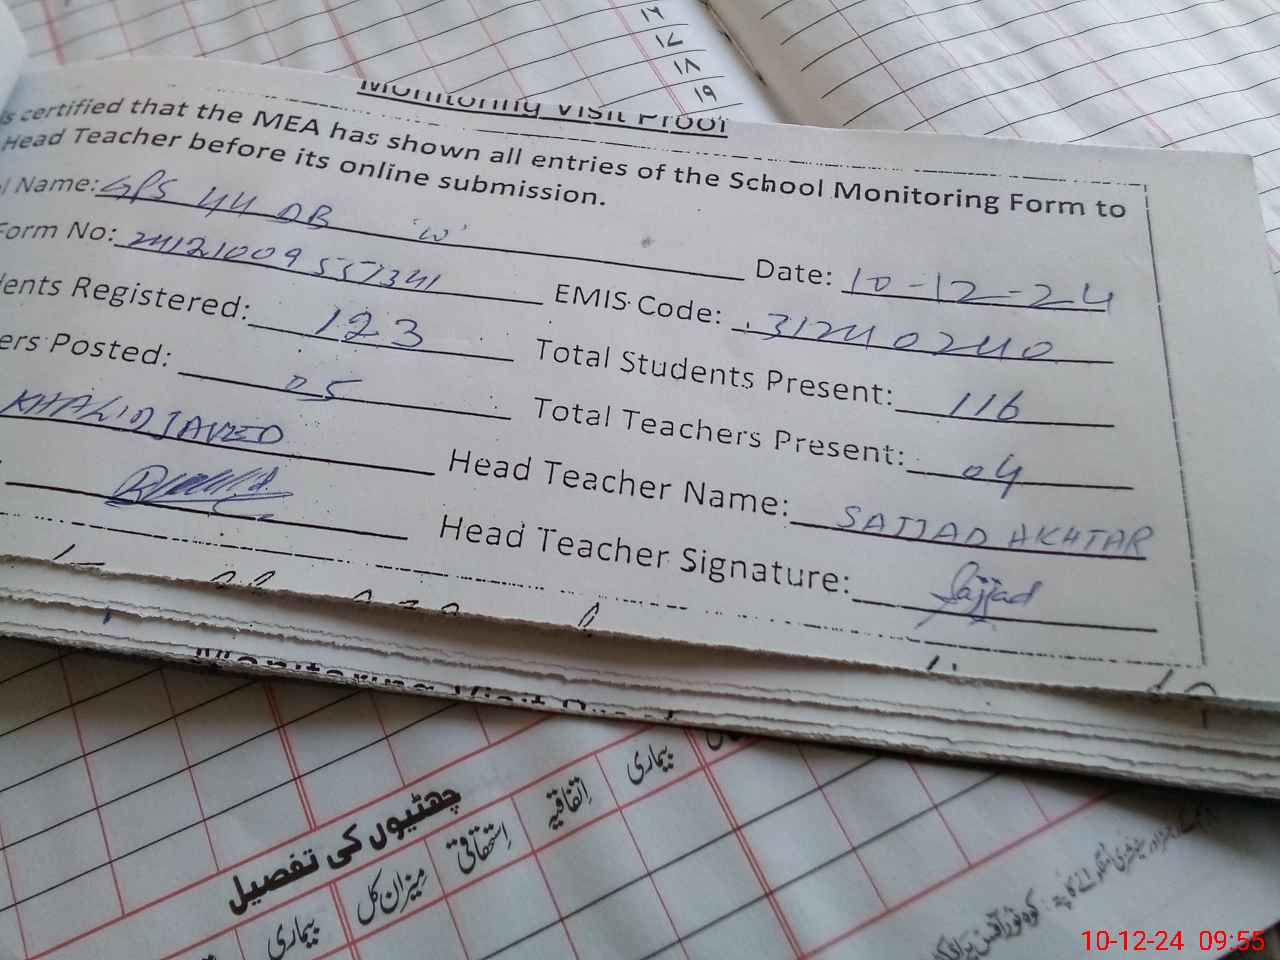 ۱۶
۱۷
۱۸
۱۹
Monitoring Visit Proof
certified that the MEA has shown all entries of the School Monitoring Form to
Head Teacher before its online submission.
Name: GPS 44 DB 'W'
Date: 10-12-24
Form No: 24121009557341
EMIS Code: 31240240
Registered: 123
Total Students Present: 116
Posted: 05
Total Teachers Present: 04
KHALID JAVEED
Head Teacher Name: SAJJAD AKHTAR
Head Teacher Signature: Sajjad
Monitoring Visit
چھٹیوں کی تفصیل
بیماری
اتفاقیہ
استحقاقی
میزان کل
بیماری
10-12-24 09:55